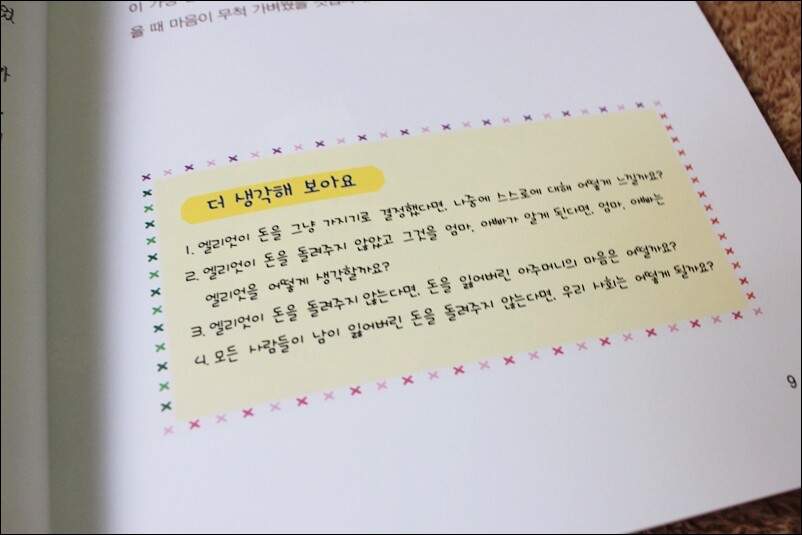 을 때 마음이 무척 가벼웠을
더 생각해 보아요
1. 엘리엇이 돈을 그냥 가지기로 결정했다면, 나중에 스스로에 대해 어떻게 느낄까요?
2. 엘리엇이 돈을 돌려주지 않았고 그것을 엄마, 아빠가 알게 된다면, 엄마, 아빠는
엘리엇을 어떻게 생각할까요?
3. 엘리엇이 돈을 돌려주지 않는다면, 돈을 잃어버린 아주머니의 마음은 어떨까요?
4. 모든 사람들이 남이 잃어버린 돈을 돌려주지 않는다면, 우리 사회는 어떻게 될까요?
9